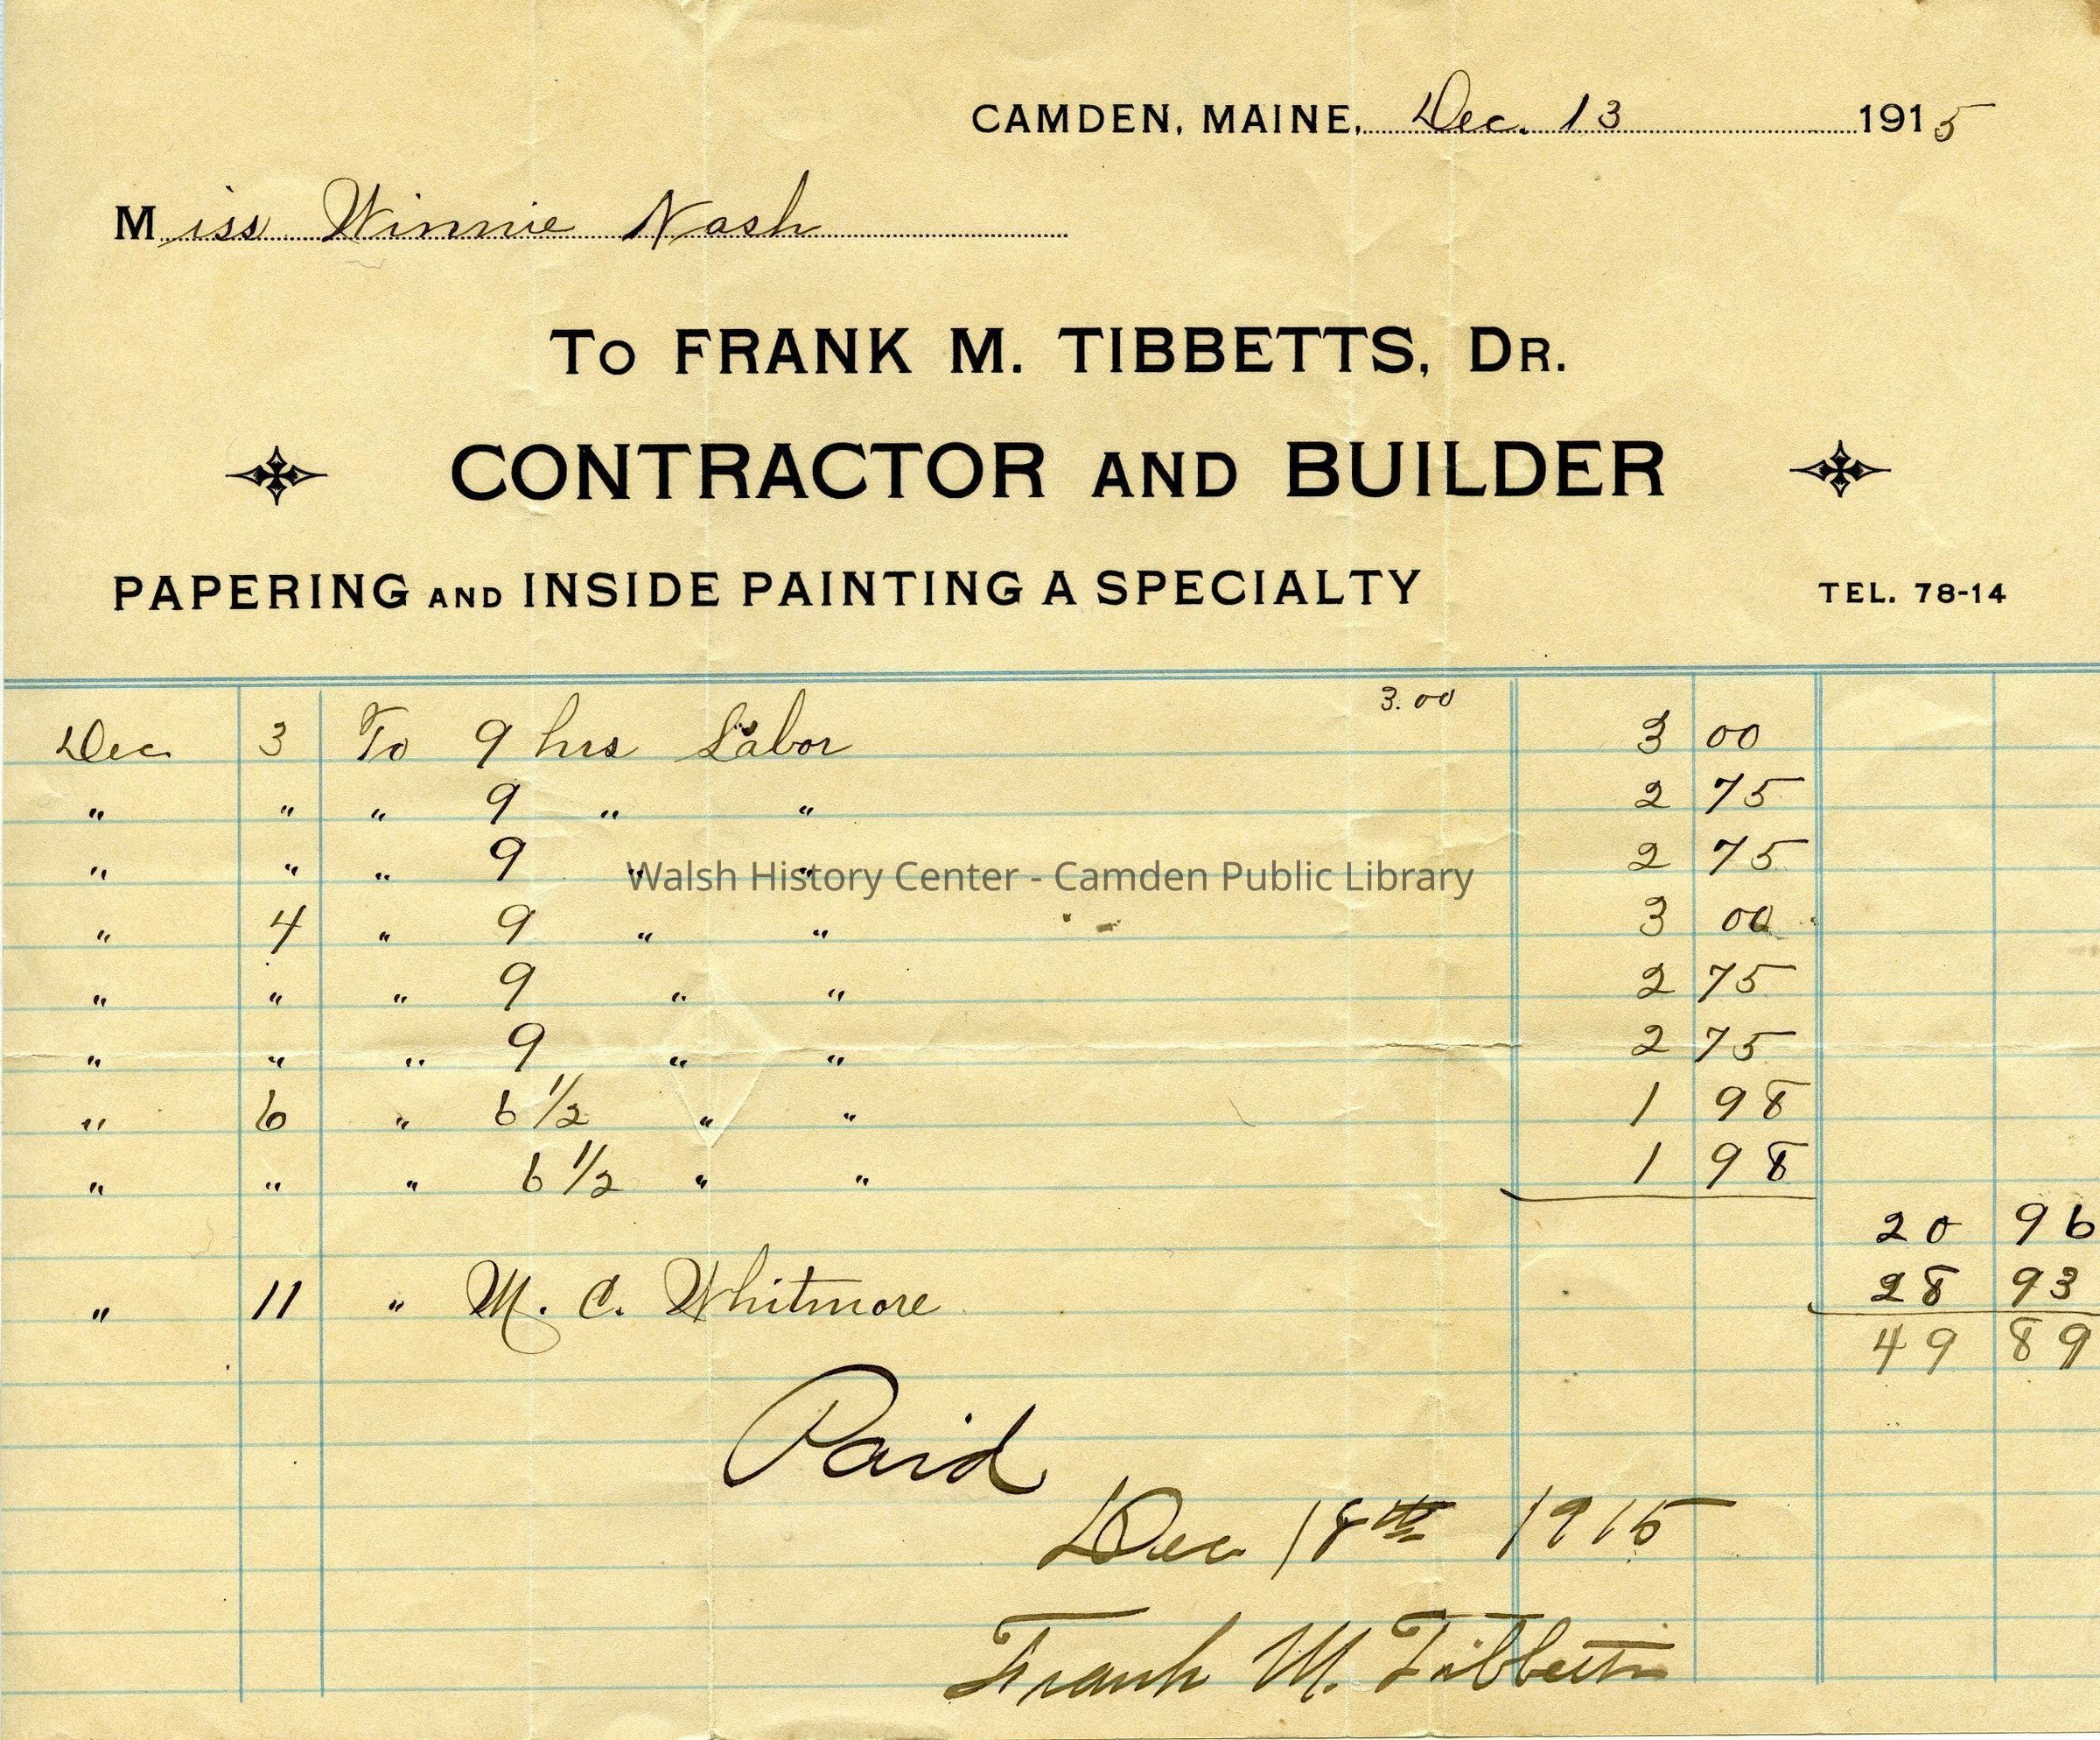 CAMDEN, MAINE, Dec. 13 1915
Miss Winnie Nash
To FRANK M. TIBBETTS, Dr.
CONTRACTOR AND BUILDER
PAPERING AND INSIDE PAINTING A SPECIALTY TEL. 78-14
3.00
Dec 3 To 9 hrs Labor 3 00
" " " 9 " " 2 75
" " " 9 " " 2 75
Walsh History Center - Camden Public Library
" 4 " 9 " " 3 00
" " " 9 " " 2 75
" " " 9 " " 2 75
" 6 " 6 1/2 " " 1 98
" " " 6 1/2 " " 1 98
20 96
" 11 " M. C. Whitmore 28 93
49 89
Paid
Dec 18th 1915
Frank M. Tibbetts